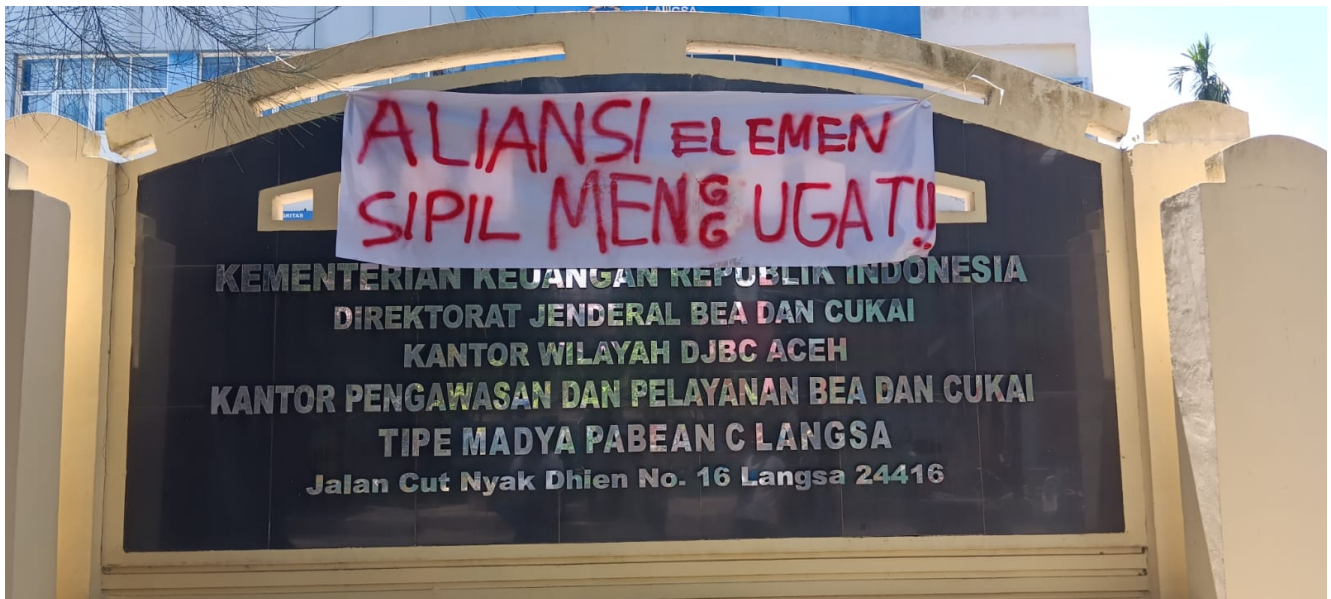 LANGSA
ALIANSI ELEMEN
SIPIL MENGGUGAT!!
KEMENTERIAN KEUANGAN REPUBLIK INDONESIA
DIREKTORAT JENDERAL BEA DAN CUKAI
KANTOR WILAYAH DJBC ACEH
KANTOR PENGAWASAN DAN PELAYANAN BEA DAN CUKAI
TIPE MADYA PABEAN C LANGSA
Jalan Cut Nyak Dhien No. 16 Langsa 24416